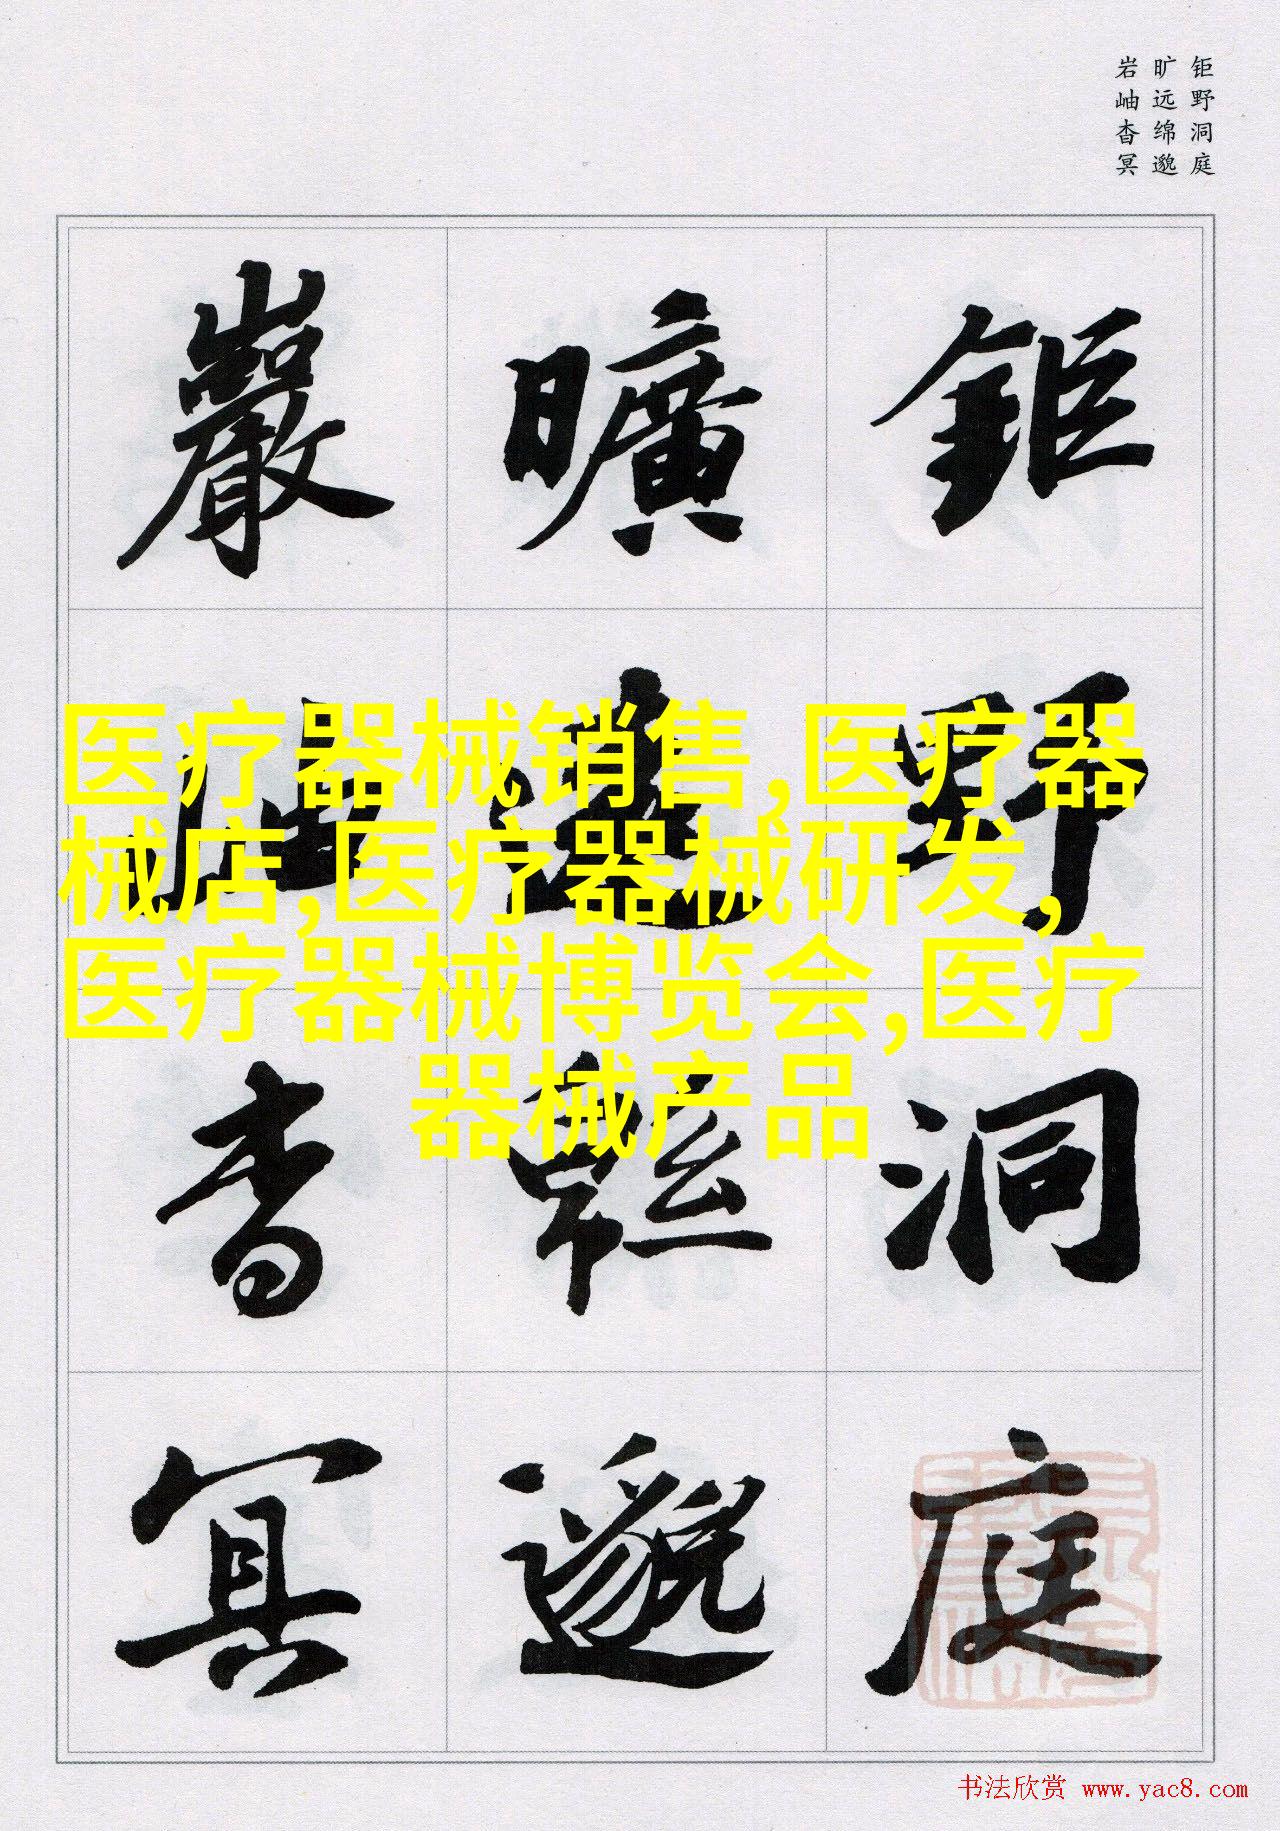 钜野洞庭
旷远绵邈
岩岫杳冥
鉅野洞庭
曠遠緜邈
巖岫杳冥
医疗器械销售,医疗器
械店,医疗器械研发,
医疗器械博览会,医疗
器械产品
书法欣赏 www.yac8.com